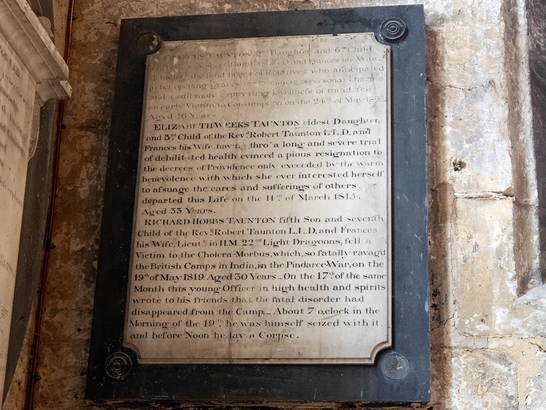 TAUNTON 2nd Daughter and 6th Child
and Frances his Wife,
the fond hopes of Relatives who anticipated
and still more loveliness of mind, fell
an early Victim to Consumption on the 24th of May
Aged 16 Years.
ELIZABETH WEEKS TAUNTON eldest Daughter,
and 3d Child of the Revd Robert Taunton L.L.D, and
Frances his Wife, having thro' a long and severe trial
of debilitated health evinced a pious resignation to
the decrees of Providence only exceeded by the warm
benevolence with which she ever interested herself
to assuage the cares and sufferings of others,
departed this Life on the 11th of March 1813.
Aged 33 Years.
RICHARD HOBBS TAUNTON fifth Son and seventh
Child of the Revd Robert Taunton L.L.D, and Frances
his Wife, Lieutt in H.M. 22nd Light Dragoons, fell a
Victim to the Cholera-Morbus, which, so fatally ravag'd
the British Camps in India, in the Pindaree-War, on the
19th of May 1819 Aged 30 Years.. On the 17th of the same
Month this young Officer in high health and spirits
wrote to his friends that the fatal disorder had
disappeared from the Camp.... About 7 o,clock in the
Morning of the 19th, he was himself seized with it,
and before Noon he lay a Corpse.